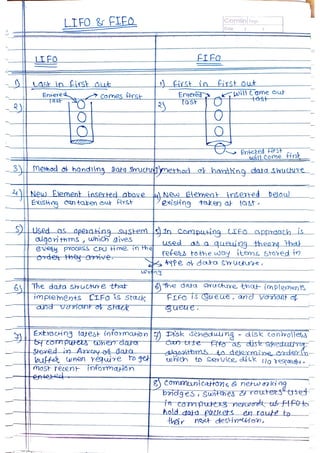 LIFO & FIFO
LIFO
FIFO
1) Last in First out
1) First in First out
2)
Entered last
comes first
2)
Entered last
will come out last
Entered First will come first
3) Method of handling Data Structure
3) method of handling data structure
4) New Element inserted above
Existing can taken out first
4) New Element inserted below
existing taken at last.
5) Used as operating system
algorithms, which gives
every process CPU time in the
order they arrive.
5) In Computing LIFO approach is
used as a queuing theory that
refers to the way items stored in
type of data structure.
6) The data structure that
implements LIFO is Stack
and variant of Stack
6) The data structure that implements
FIFO is Queue. and variant of
Queue.
7) Extracting latest information
by computers when data
stored in Array of data
buffer when require to get
most recent information
entered
7) Disk scheduling - disk controllers
can use Fifo as disk scheduling
algorithms to determine order in
which to service disk I/O request.
8) communications & networking
bridges, switches & routers used
in computers network as FIFO to
hold data packets en route to
their next destination.